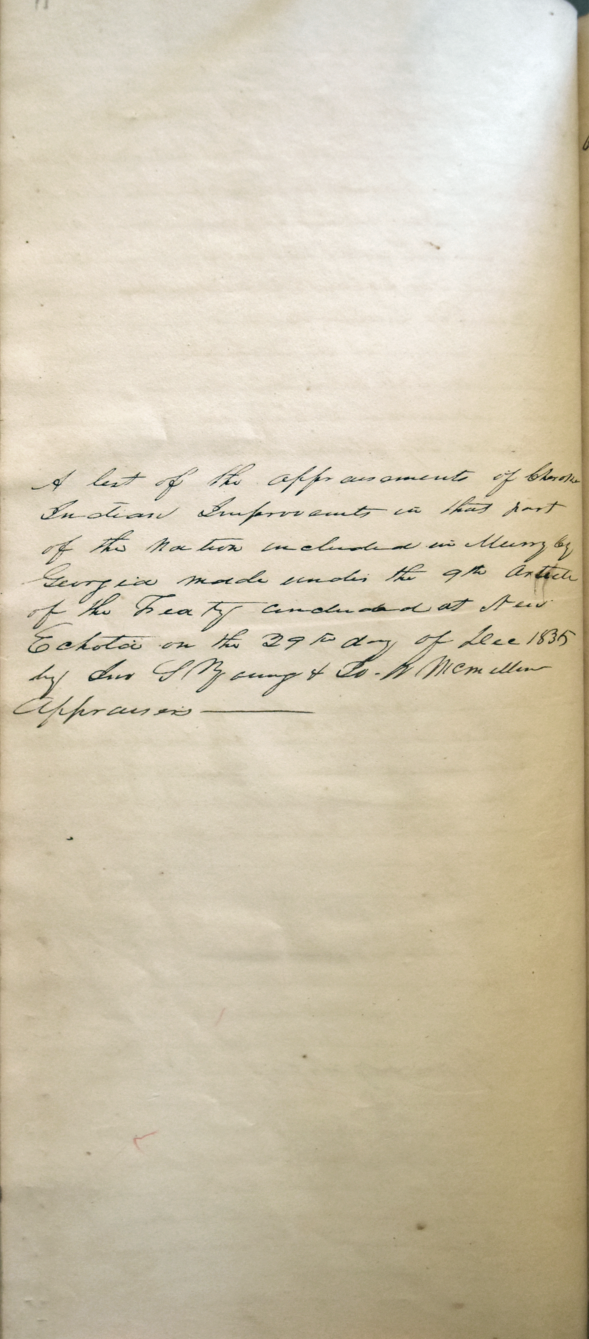 A list of the appraisments of Cherokee
Indian Improvments in that part
of the Nation included in Murry Cty
Georgia made under the 9th Article
of the Treaty concluded at New
Echota on the 29th day of Dec 1835
by Jno S Young & Jo. W Mcmillin
Appraisers